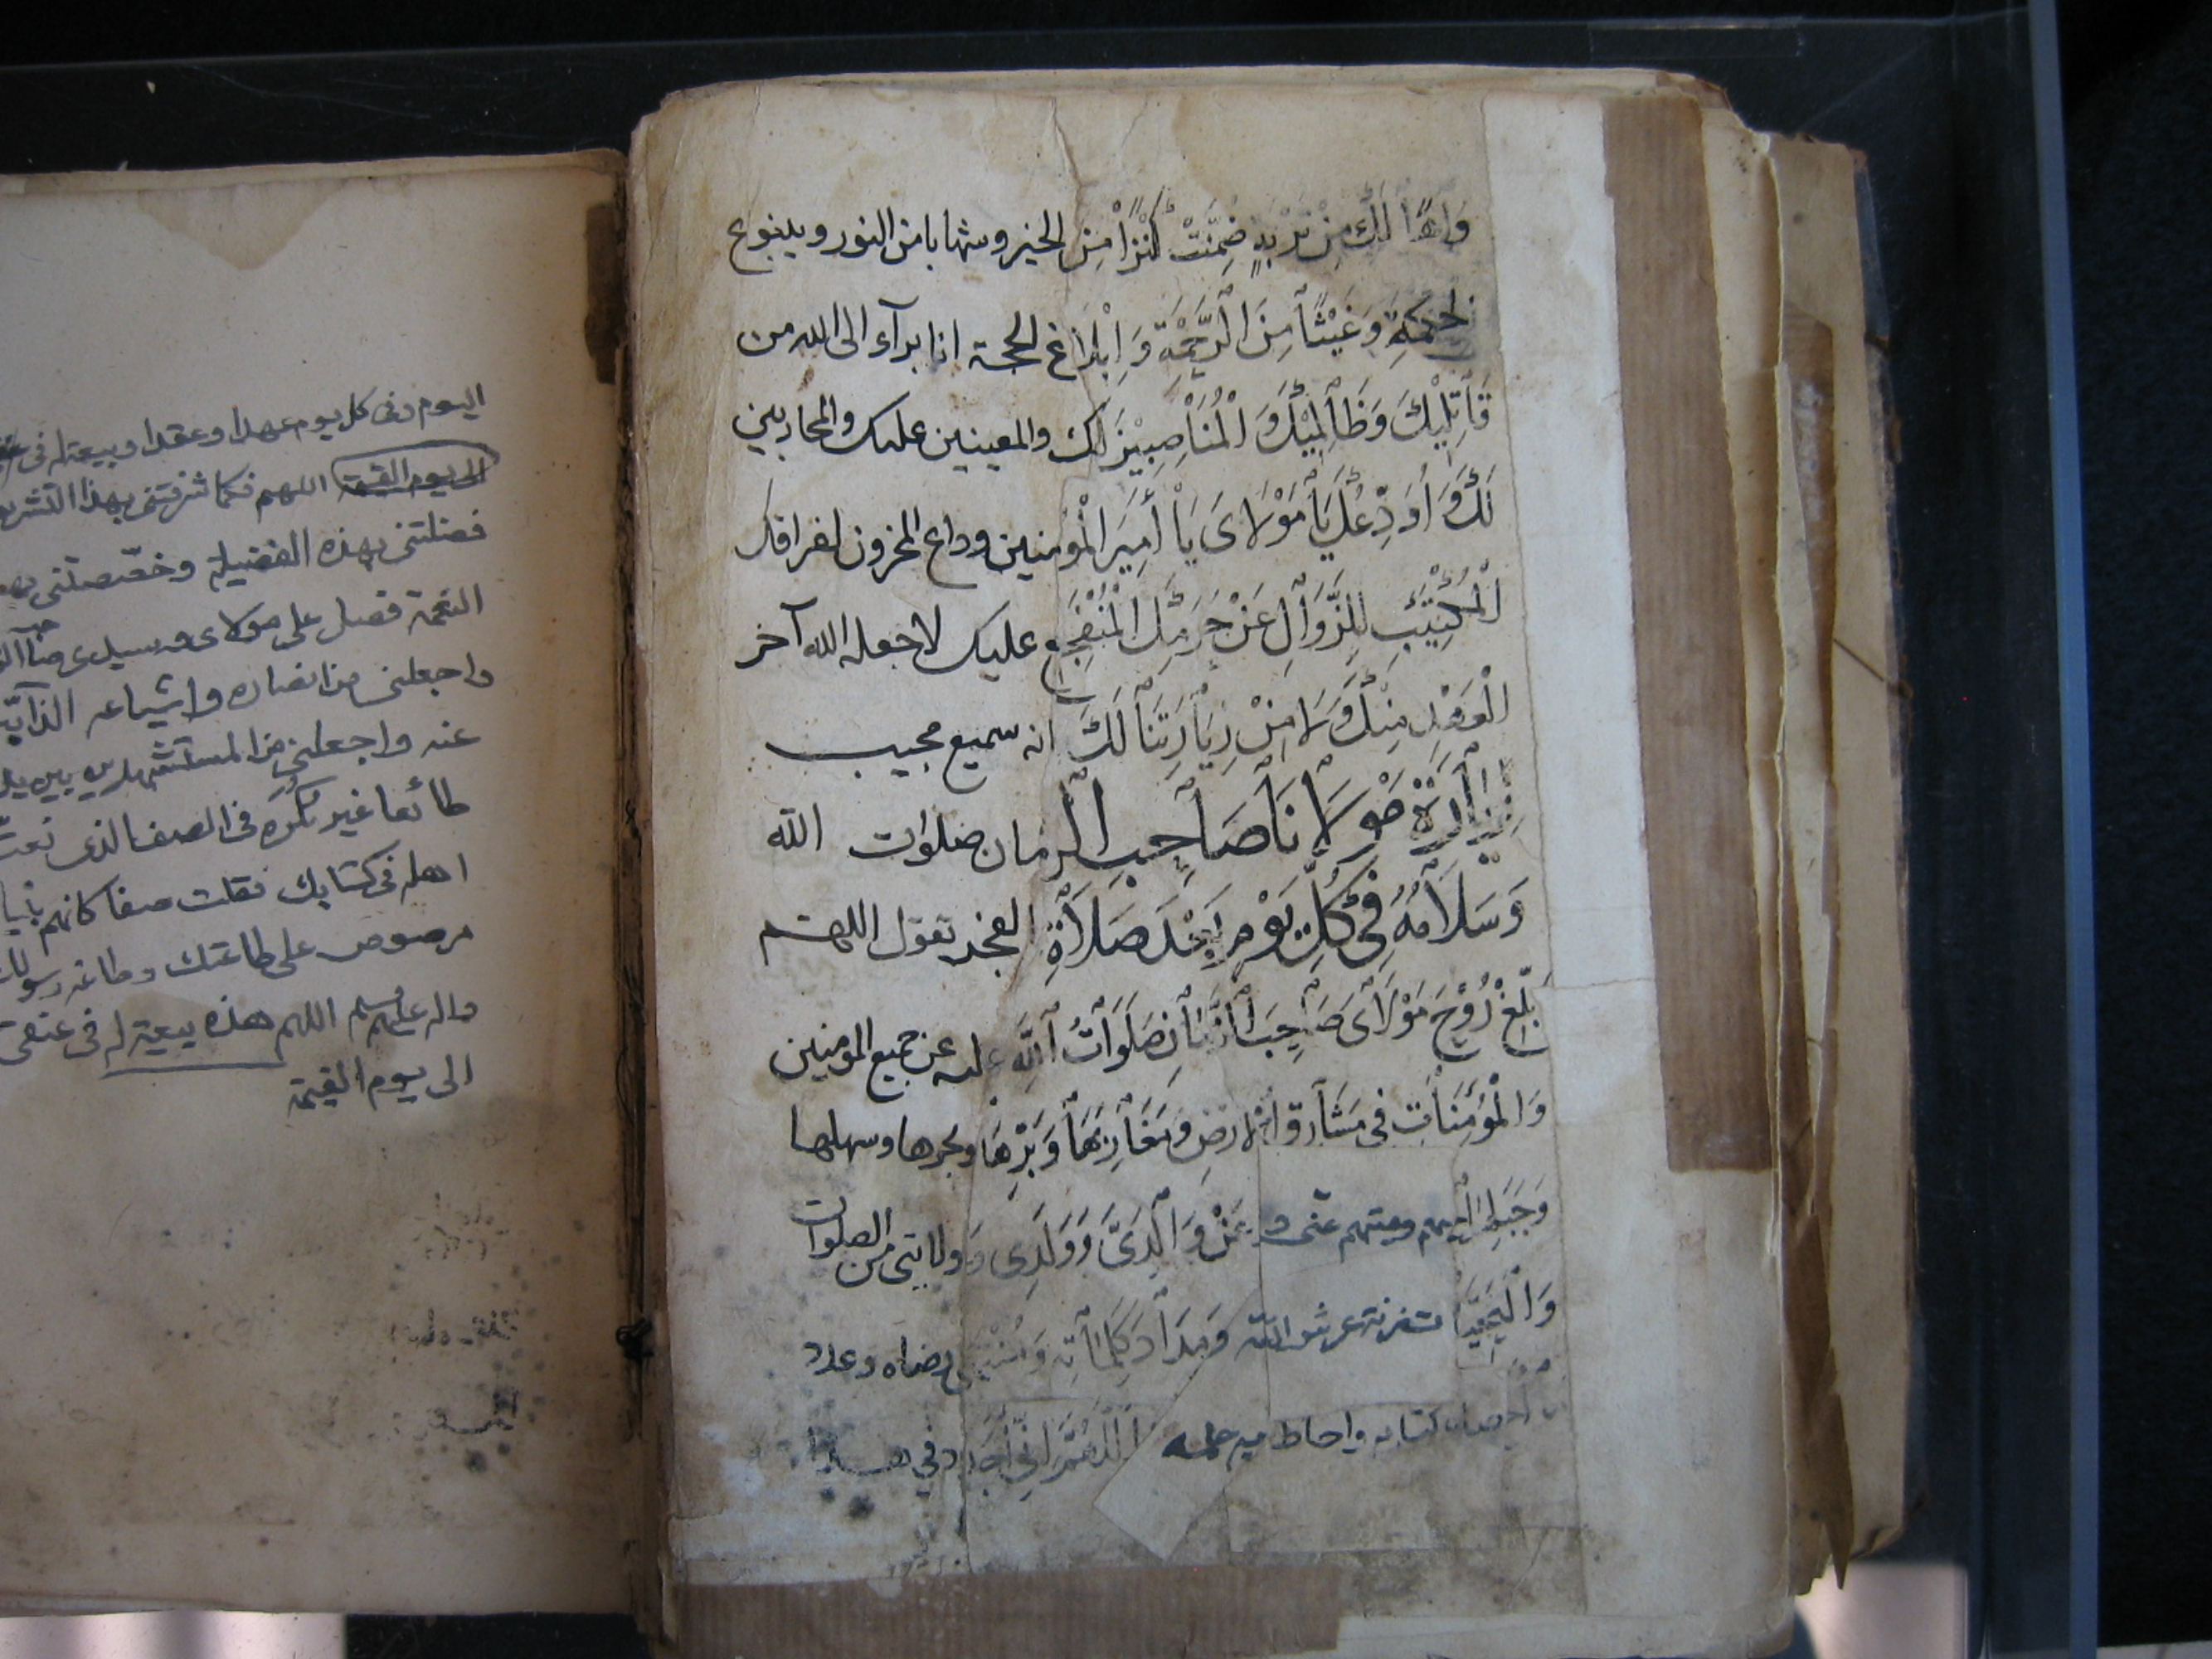 وَاهًا لَكَ مِنْ تُرْبَةٍ ضُمِّنَتْ كَنْزًا مِنَ الخير وشهابا من النور وينبوع
الحِكْمَةِ وَغَيْثًا مِنَ الرَّحْمَةِ وَإِبْلَاغِ الحجة انا برآء الى الله من
قَاتِلِيْكَ وَظَالِمِيْكَ وَالْمُنَاصِبِيْنَ لَكَ والمعينين عليك والمحاربين
لَكَ وَأُوَدِّعُكَ يَا مَوْلَايَ يَا أَمِيرَ الْمُؤمنين وداع المحزون لفراقك
الْمُكْتَئِبِ لِلزَّوَالِ عَنْ حَرَمِكَ الْمُتَفَجِّعِ عليك لا جعله الله آخر
الْعَهْدِ مِنْكَ وَلَا مِنْ زِيَارَتِنَا لَكَ انه سميع مجيب
زِيَارَة مَوْلَانَا صَاحِبِ الزمان صلوات الله
وَسَلَامُهُ فِي كُلِّ يَوْمٍ بَعْدَ صَلَاةِ الفجر تقول اللهم
بَلِّغْ رُوْحَ مَوْلَايَ صَاحِبَ الزَّمَانِ صَلَوَاتُ اللهِ عليه عن جميع المومنين
وَالْمُؤْمِنَاتِ فى مَشَارِق الارضِ وَمَغَارِبِهَا وَبَرِّهَا وبحرها وسهلها
وَجَبَلِهَا حيهم وميتهم عنى وَعَنْ وَالِدَيَّ وَوَلَدِى وولايتى من الصلوات
وَالتَّحِيَّاتِ زنة عرش الله وَمِدَادَ كَلِمَاتِهِ وَمُنْتَهَى رضاه وعدد
ما احصاه كتابه واحاط به علمه اللَّهُمَّ إِنِّي أُجَدِّد في هذا
اليوم وفى كل يوم عهدا وعقدا وبيعة له فى
الى يوم القيمة اللهم فكما شرفتنى بهذا التشريف
فضلتنى بهذه الفضيلة وخصّصتنى
النعمة فصل على مولاى وسيدى صاحب
واجعلنى من انصاره واشياعه الذابّين
عنه واجعلنى من المستشهدين بين يديه
طائعا غير مكره فى الصف الذى نعت
اهله فى كتابك فقلت صفا كانهم بنيان
مرصوص على طاعتك وطاعة رسولك
واله عليهم السلم اللهم هذه بيعة له فى عنقى
الى يوم القيمة